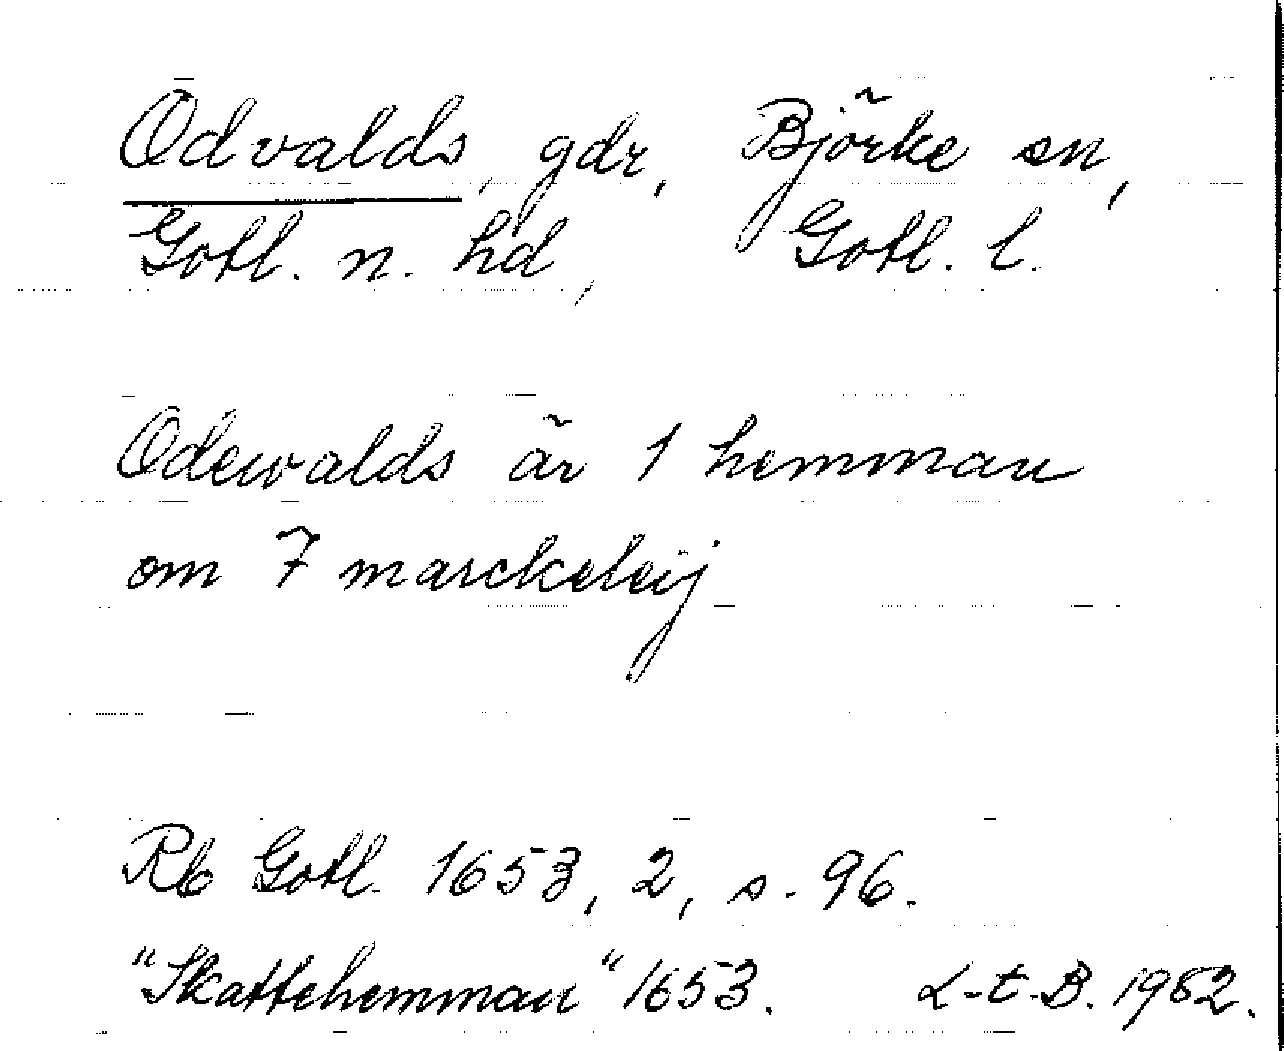 Odvalds, gdr, Björke sn,
Gotl. n. hd, Gotl. l.
Odewalds är 1 hemman
om 7 marckeleij
Rb Gotl. 1653, 2, s. 96.
"Skattehemman" 1653. L-t-B. 1952.